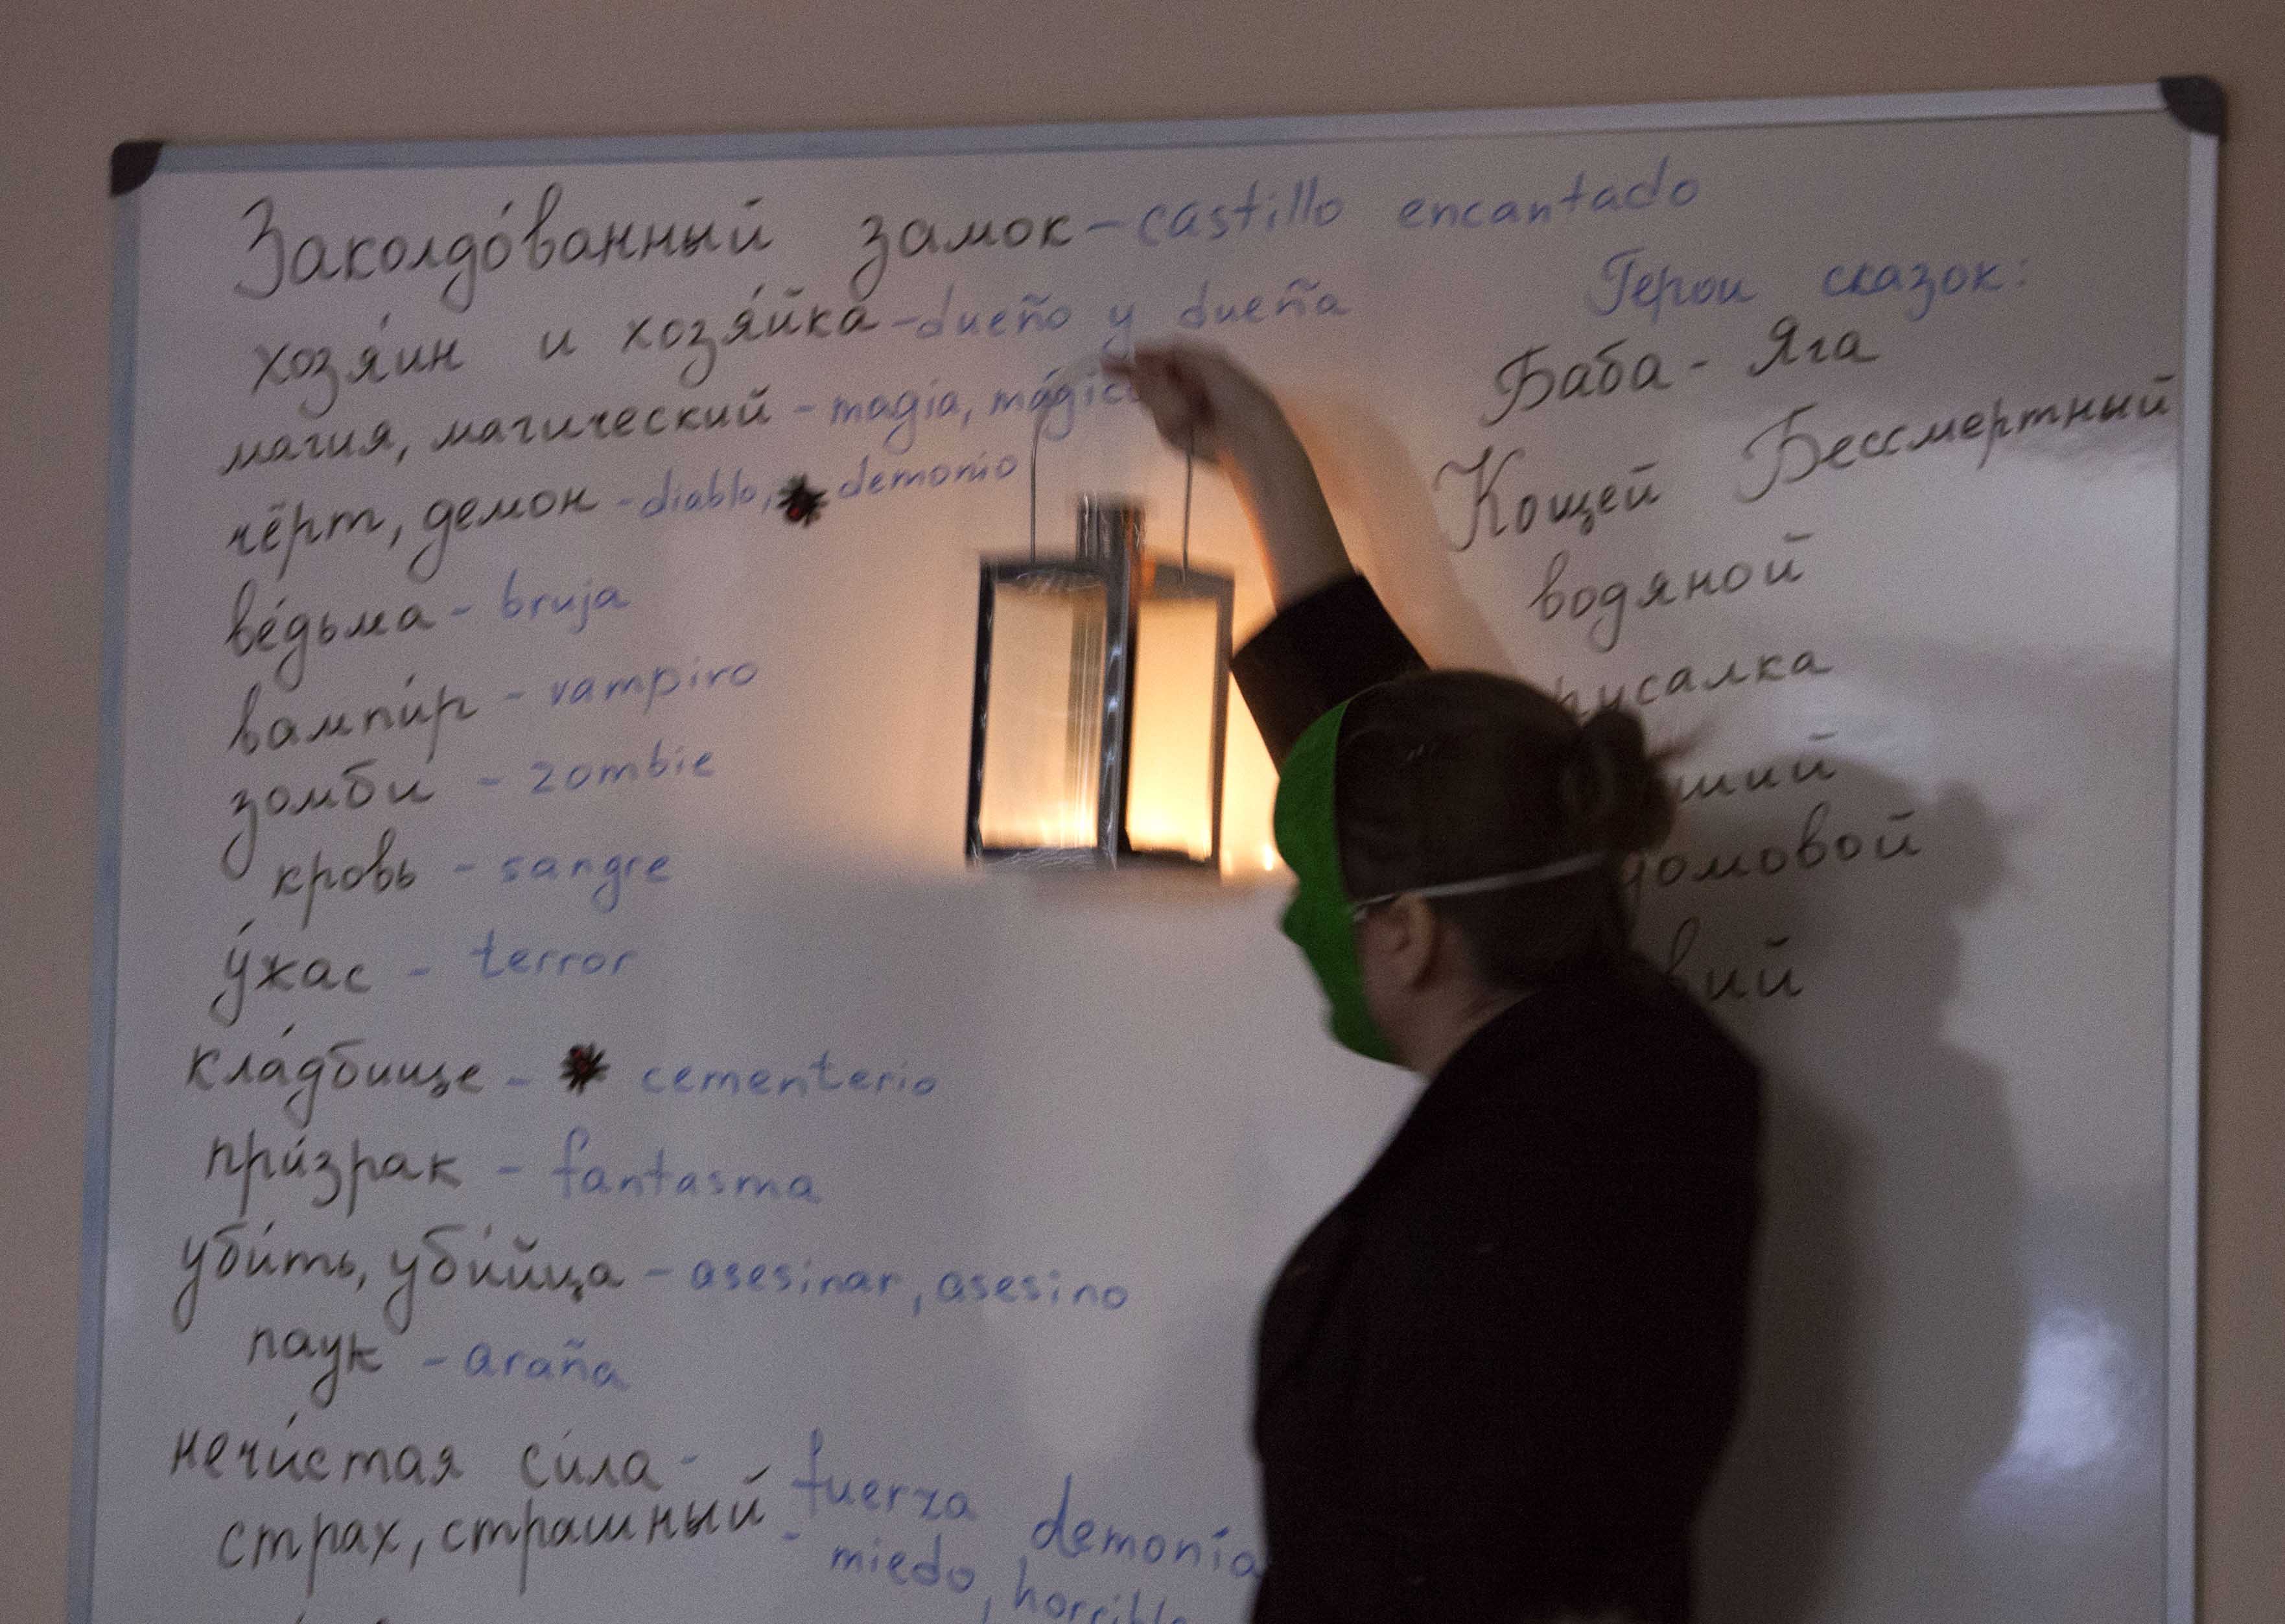 Заколдо́ванный замок - castillo encantado
хозя́ин и хозя́йка - dueño y dueña
магия, магический - magia,
чёрт, демон - diablo, demonio
ве́дьма - bruja
вампи́р - vampiro
зомби - zombie
кровь - sangre
у́жас - terror
кла́дбище - cementerio
при́зрак - fantasma
уби́ть, уби́йца - asesinar, asesino
паук - araña
нечи́стая си́ла - fuerza
страх, страшный - miedo,
Герои сказок:
Баба - Яга
Кощей Бессмертный
водяной
русалка
домовой